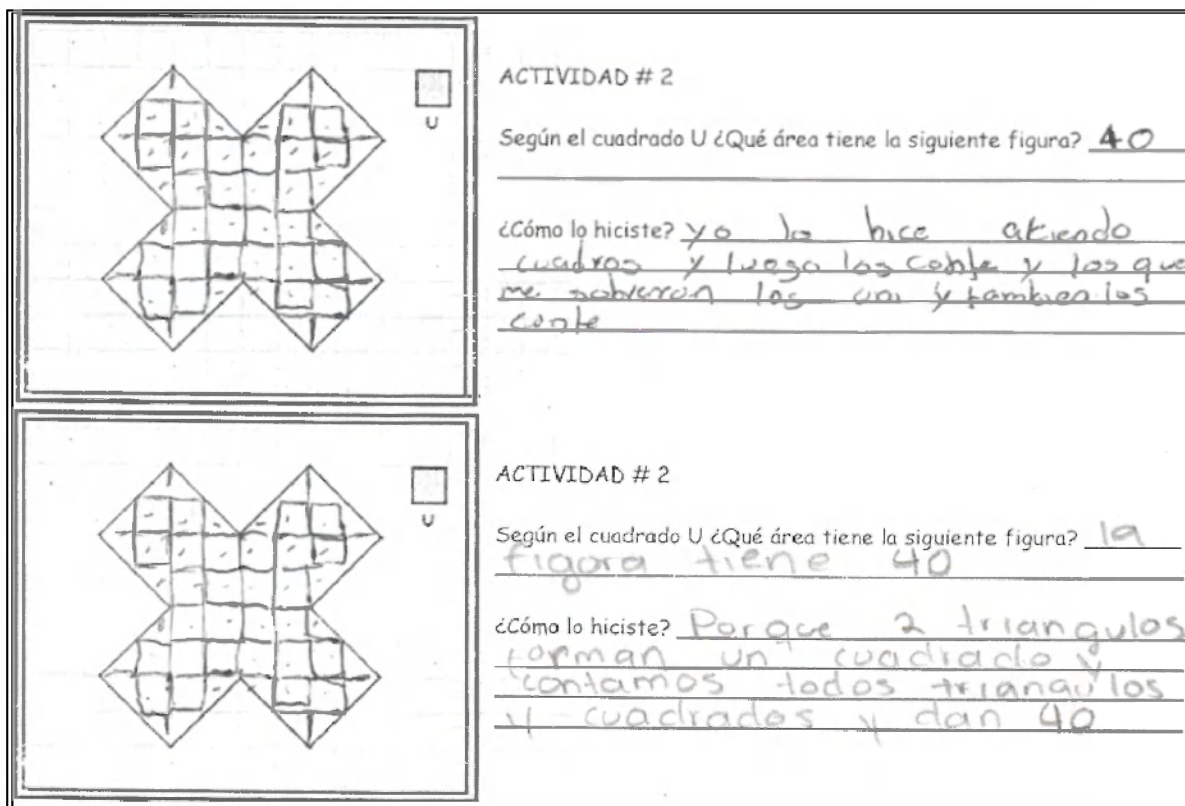 U
ACTIVIDAD # 2
Según el cuadrado U ¿Qué área tiene la siguiente figura? 40
¿Cómo lo hiciste? yo lo hice
cuadros y luego los conte y los que
me sobraron los uni y tambien los
conte
U
ACTIVIDAD # 2
Según el cuadrado U ¿Qué área tiene la siguiente figura? la
figura tiene 40
¿Cómo lo hiciste? Porque 2 triangulos
forman un cuadrado y
contamos todos triangulos
y cuadrados y dan 40